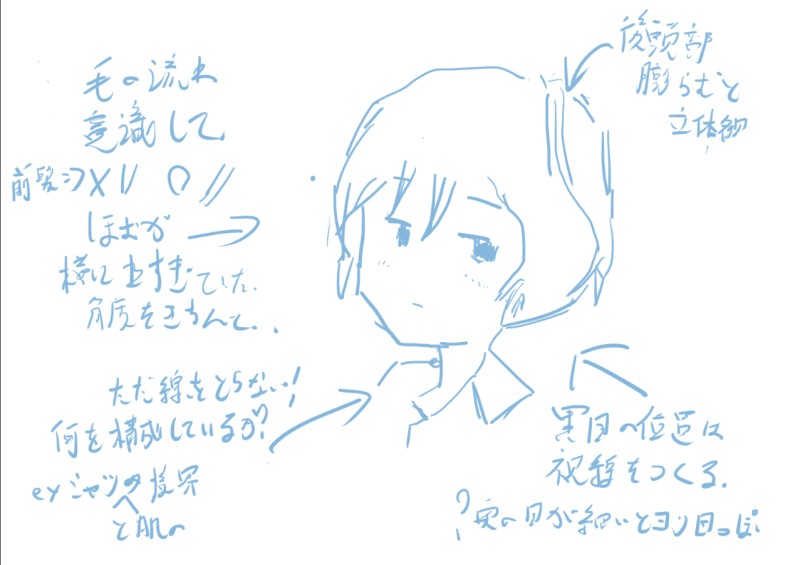 毛の流れ
意識して
前髪⇒X || ○ //
ほむが
横に出すぎていた.
ただ線をとらない!
何を構成しているか?
ex シャツの境界
後頭部
膨らむと
立体的
黒目の位置は
視線をつくる.
?実の目が細いとヨソ目っぽ